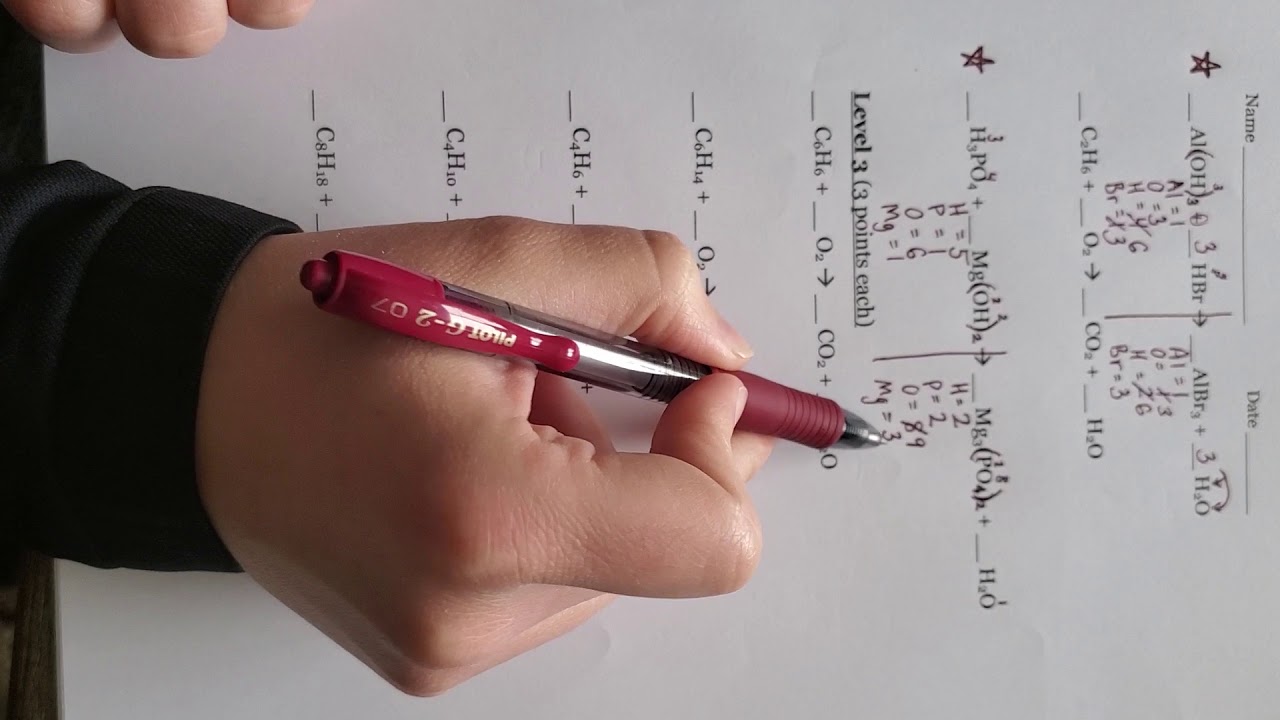 Name ____________ Date ________
☆ __ Al(OH)₃ + 3 HBr → __ AlBr₃ + 3 H₂O
Al = 1 Al = 1
O = 3 O = 1 3
H = 4 6 H = 2 6
Br = 1 3 Br = 3
__ C₂H₆ + __ O₂ → __ CO₂ + __ H₂O
☆ __ H₃PO₄ + __ Mg(OH)₂ → __ Mg₃(PO₄)₂ + __ H₂O
H = 5 H = 2
P = 1 P = 2
O = 6 O = 8 9
Mg = 1 Mg = 3
Level 3 (3 points each)
__ C₆H₆ + __ O₂ → __ CO₂ + O
__ C₆H₁₄ + __ O₂ →
__ C₄H₆ + __ +
__ C₄H₁₀ + __
__ C₈H₁₈ + __
PILOT G-2 07